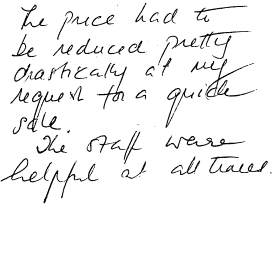 The price had to
be reduced pretty
drastically at my
request for a quick
sale.
The staff were
helpful at all times.